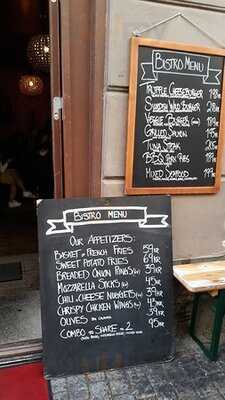 BISTRO MENU
TRUFFLE CHEESEBURGER 198kr
SWEDISH WILD BURGER 218kr
VEGGIE BURGER 198kr
GRILLED SALMON 195kr
TUNA STEAK 205kr
BBQ RIBS 195kr
MIXED SEAFOOD 195kr
BISTRO MENU
OUR APPETIZERS:
BASKET of FRENCH FRIES 59KR
SWEET POTATO FRIES 69KR
BREADED ONION RINGS 39KR
MOZZARELLA STICKS 45KR
CHILI & CHEESE NUGGETS 39KR
CHRISPY CHICKEN WINGS 45KR
OLIVES 39KR
COMBO to SHARE for 2 95KR